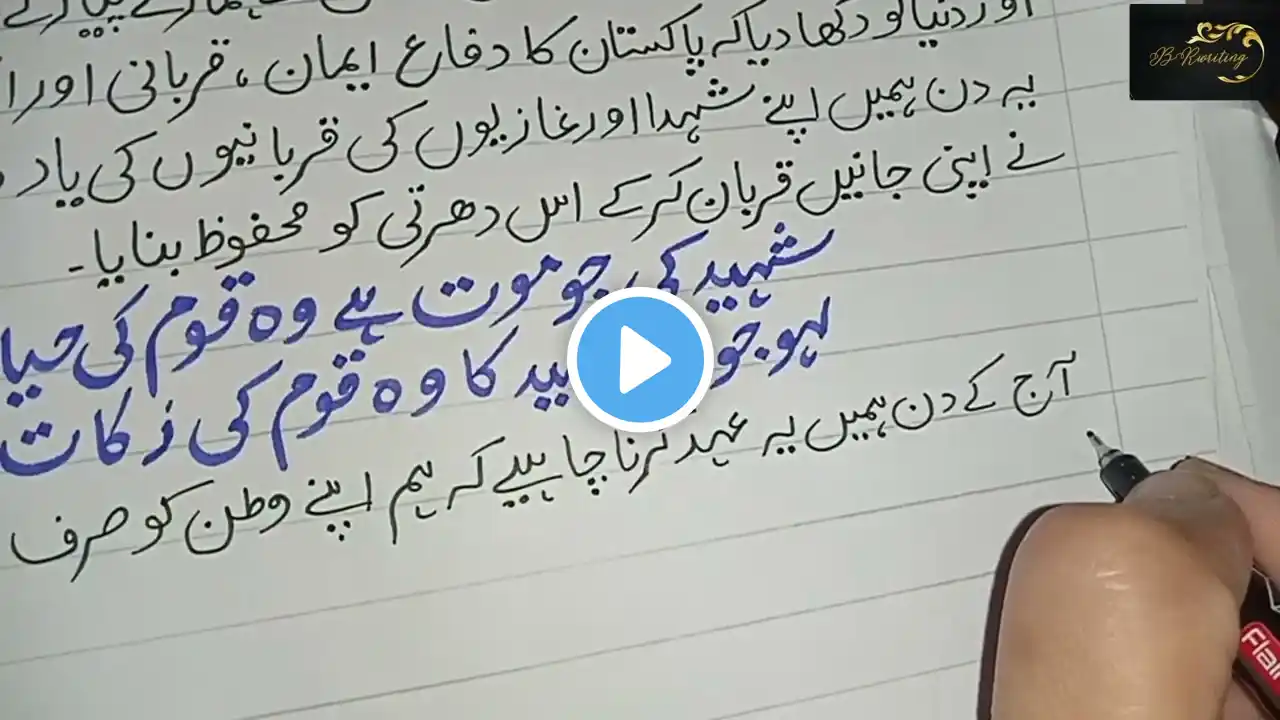 اور دنیا کو دکھا دیا کہ پاکستان کا دفاع ایمان ، قربانی اور
یہ دن ہمیں اپنے شہدا اور غازیوں کی قربانیوں کی یاد
نے اپنی جانیں قربان کرکے اس دھرتی کو محفوظ بنایا۔
شہید کی جو موت ہے وہ قوم کی حیا
لہو جو کا وہ قوم کی زکات
آج کے دن ہمیں یہ عہد کرنا چاہییے کہ ہم اپنے وطن کو صرف
B Rwriting
Flair